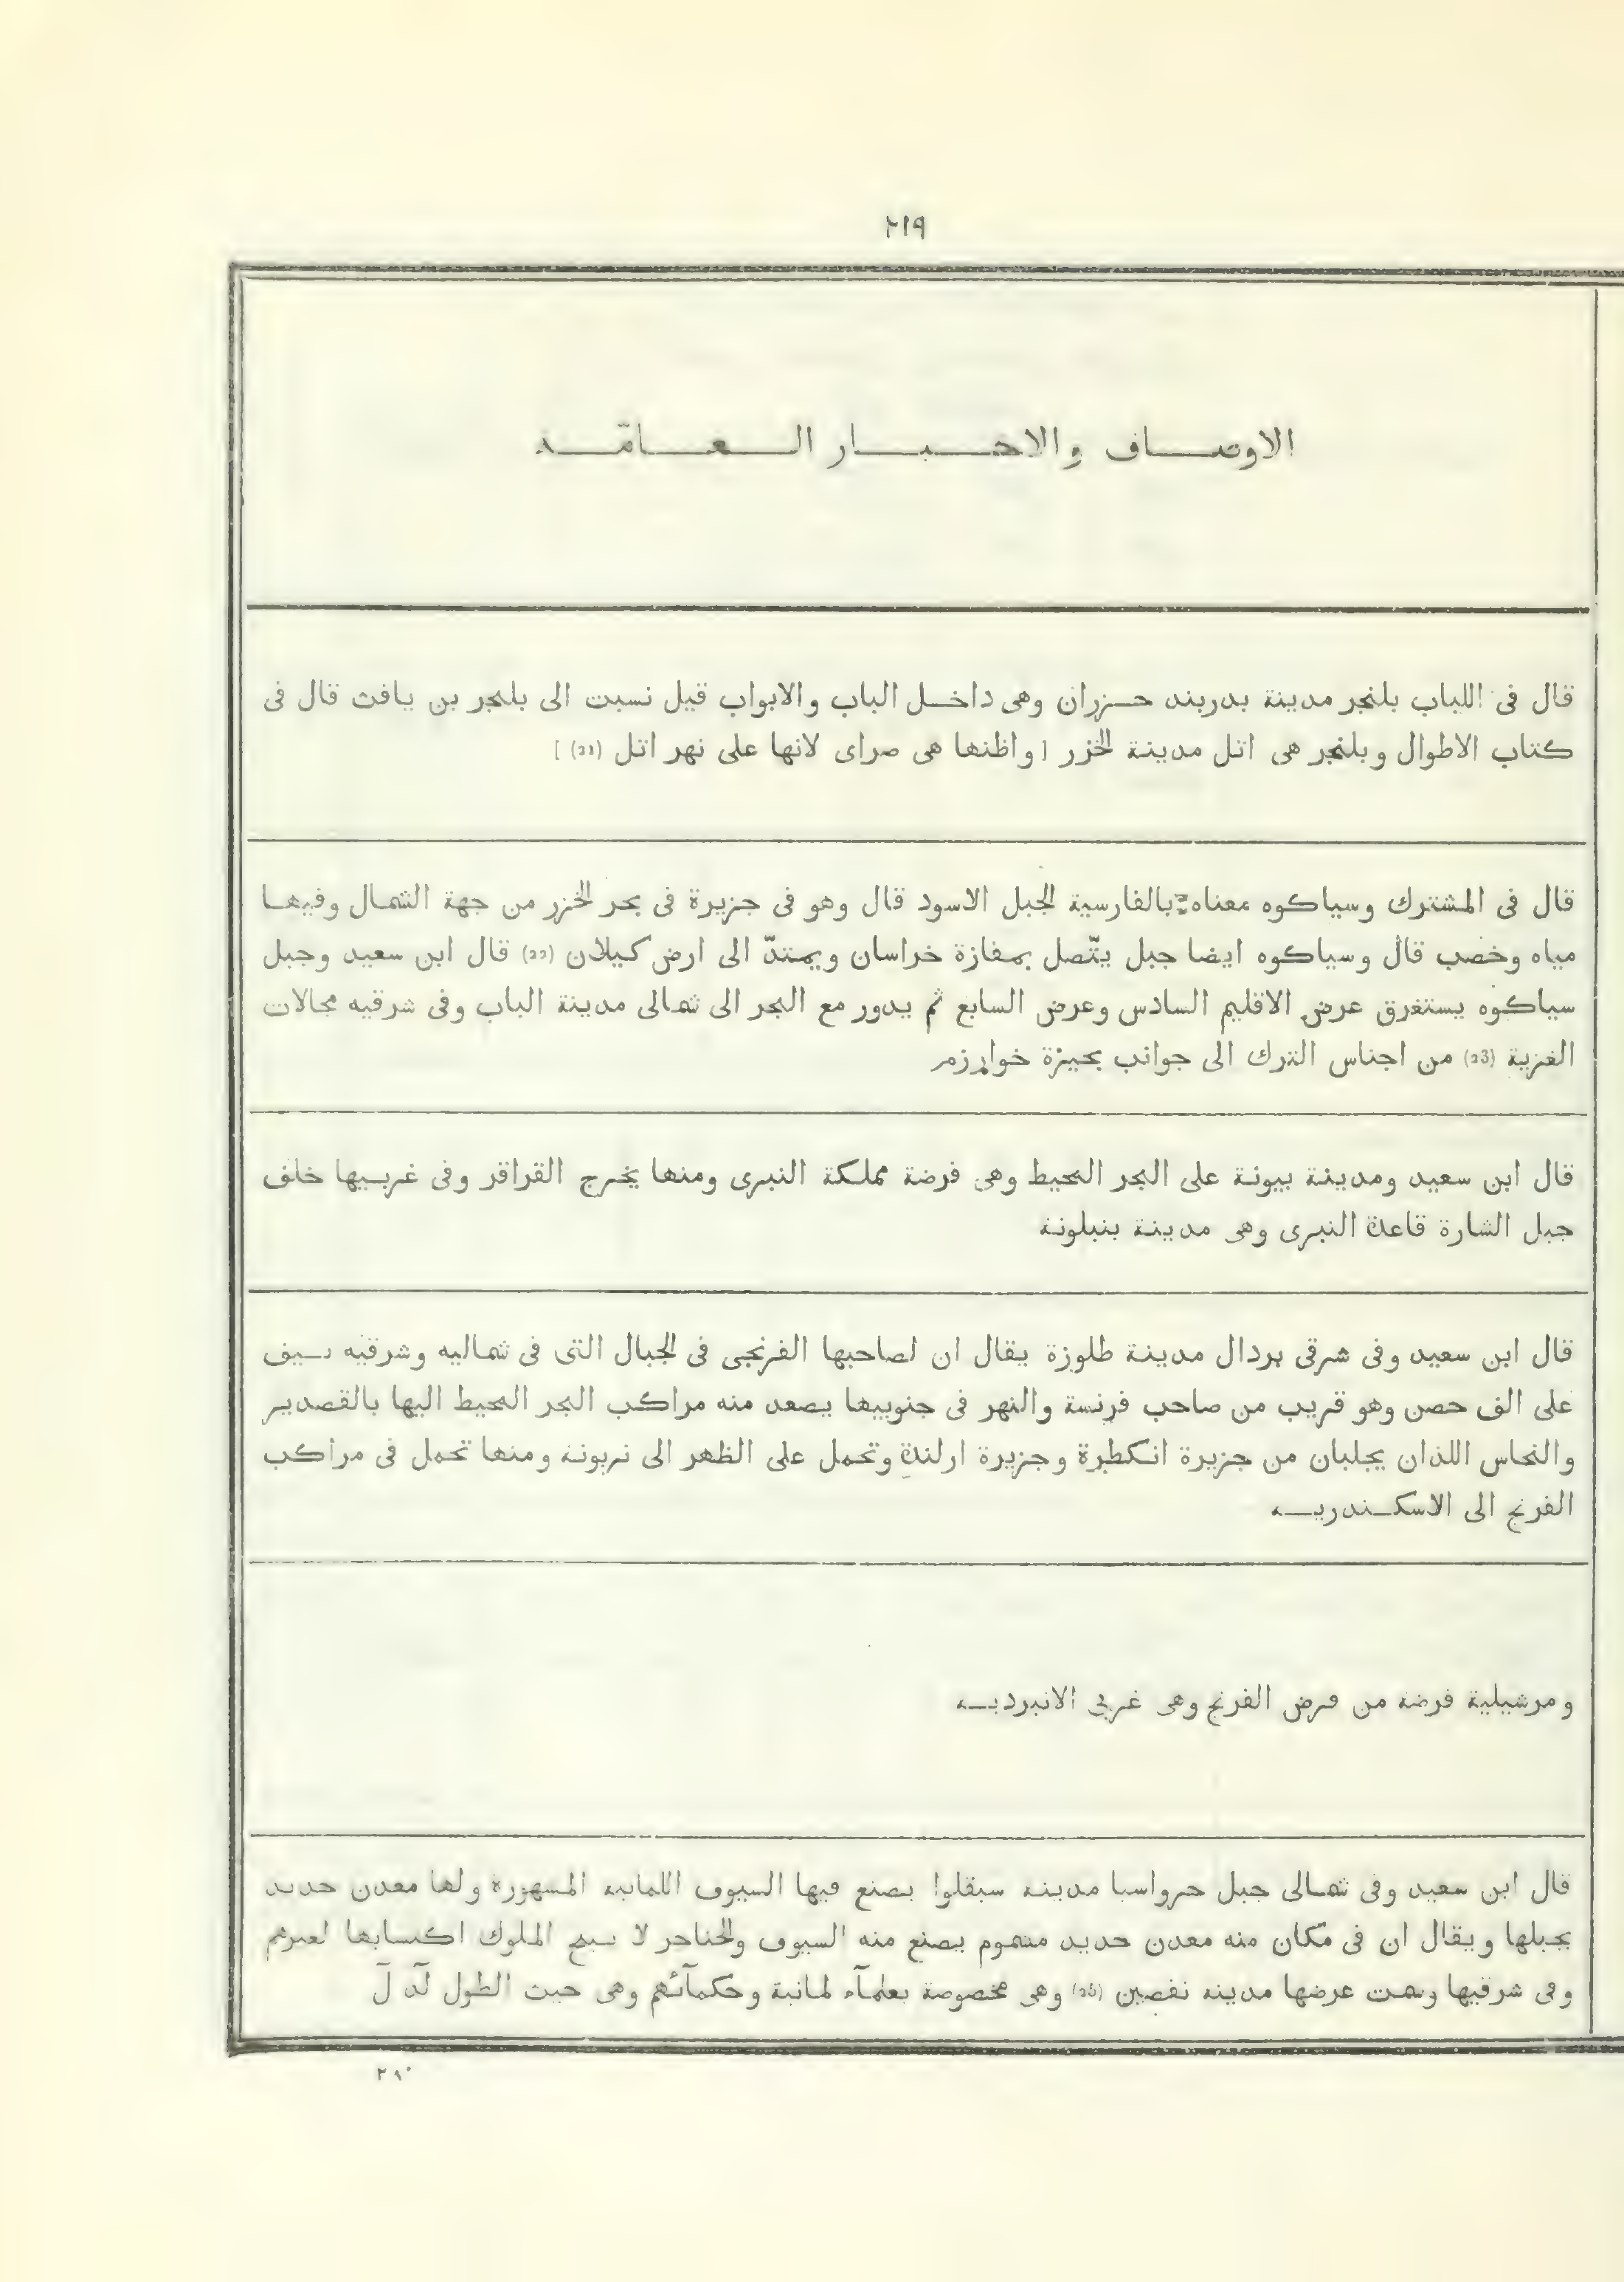 ٢١٩
الاوصاف والاخبار العامّة
قال فى اللباب بلنجر مدينة بدربند خزران وهى داخل الباب والابواب قيل نسبت الى بلنجر بن يافث قال فى
كتاب الاطوال وبلنجر هى اتل مدينة الخزر [ واظنها هى صراى لانها على نهر اتل (21) ]
قال فى المشترك وسياكوه معناه بالفارسية الجبل الاسود قال وهو فى جزيرة فى بحر الخزر من جهة الشمال وفيها
مياه وخصب قال وسياكوه ايضا جبل يتّصل بمفازة خراسان ويمتدّ الى ارض كيلان (22) قال ابن سعيد وجبل
سياكوه يستغرق عرض الاقليم السادس وعرض السابع ثم يدور مع البحر الى شمالى مدينة الباب وفى شرقيه مجالات
الغزية (23) من اجناس الترك الى جوانب بحيرة خوارزم
قال ابن سعيد ومدينة بيونة على البحر المحيط وهى فرضة مملكة النبرى ومنها يخرج القراقر وفى غربيها خلف
جبل الشارة قاعدة النبرى وهى مدينة بنبلونة
قال ابن سعيد وفى شرقى بردال مدينة طلوزة يقال ان لصاحبها الفرنجى فى الجبال التى فى شماليه وشرقيه نيف
على الف حصن وهو قريب من صاحب فرنسة والنهر فى جنوبيها يصعد منه مراكب البحر المحيط اليها بالقصدير
والنحاس اللذان يجلبان من جزيرة انكطرة وجزيرة ارلندة وتحمل على الظهر الى نربونة ومنها تحمل فى مراكب
الفرنج الى الاسكندرية
ومرشيلية فرضة من فرض الفرنج وهى غربى الانبردية
قال ابن سعيد وفى شمالى جبل حرواسيا مدينة سبقلوا يصنع فيها السيوف اللمانية المشهورة ولها معدن حديد
بجبلها ويقال ان فى مكان منه معدن حديد مسموم يصنع منه السيوف والخناجر لا تبيح الملوك اكتسابها لغيرهم
وفى شرقيها وسمت عرضها مدينة نفصين وهى مخصوصة بعلمآء لمانية وحكمآئهم وهى حيث الطول لَد لَ
٢٨٠